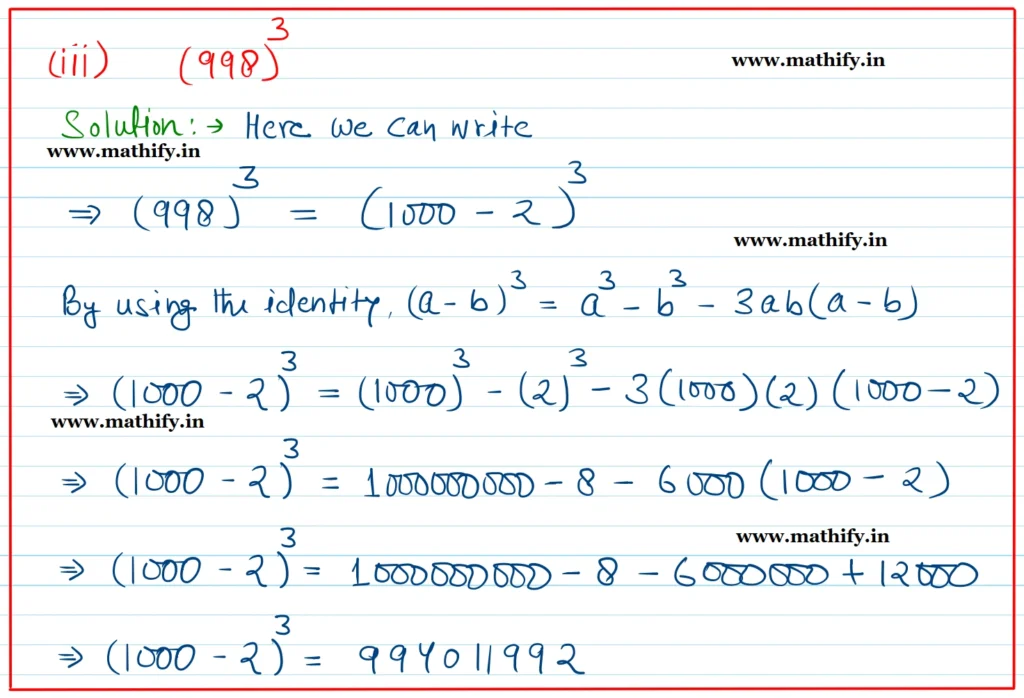 (iii) (998)³
www.mathify.in
Solution:→ Here we can write
www.mathify.in
⇒ (998)³ = (1000 - 2)³
www.mathify.in
By using the identity, (a - b)³ = a³ - b³ - 3ab(a - b)
⇒ (1000 - 2)³ = (1000)³ - (2)³ - 3(1000)(2)(1000 - 2)
www.mathify.in
⇒ (1000 - 2)³ = 1000000000 - 8 - 6000(1000 - 2)
www.mathify.in
⇒ (1000 - 2)³ = 1000000000 - 8 - 6000000 + 12000
⇒ (1000 - 2)³ = 994011992